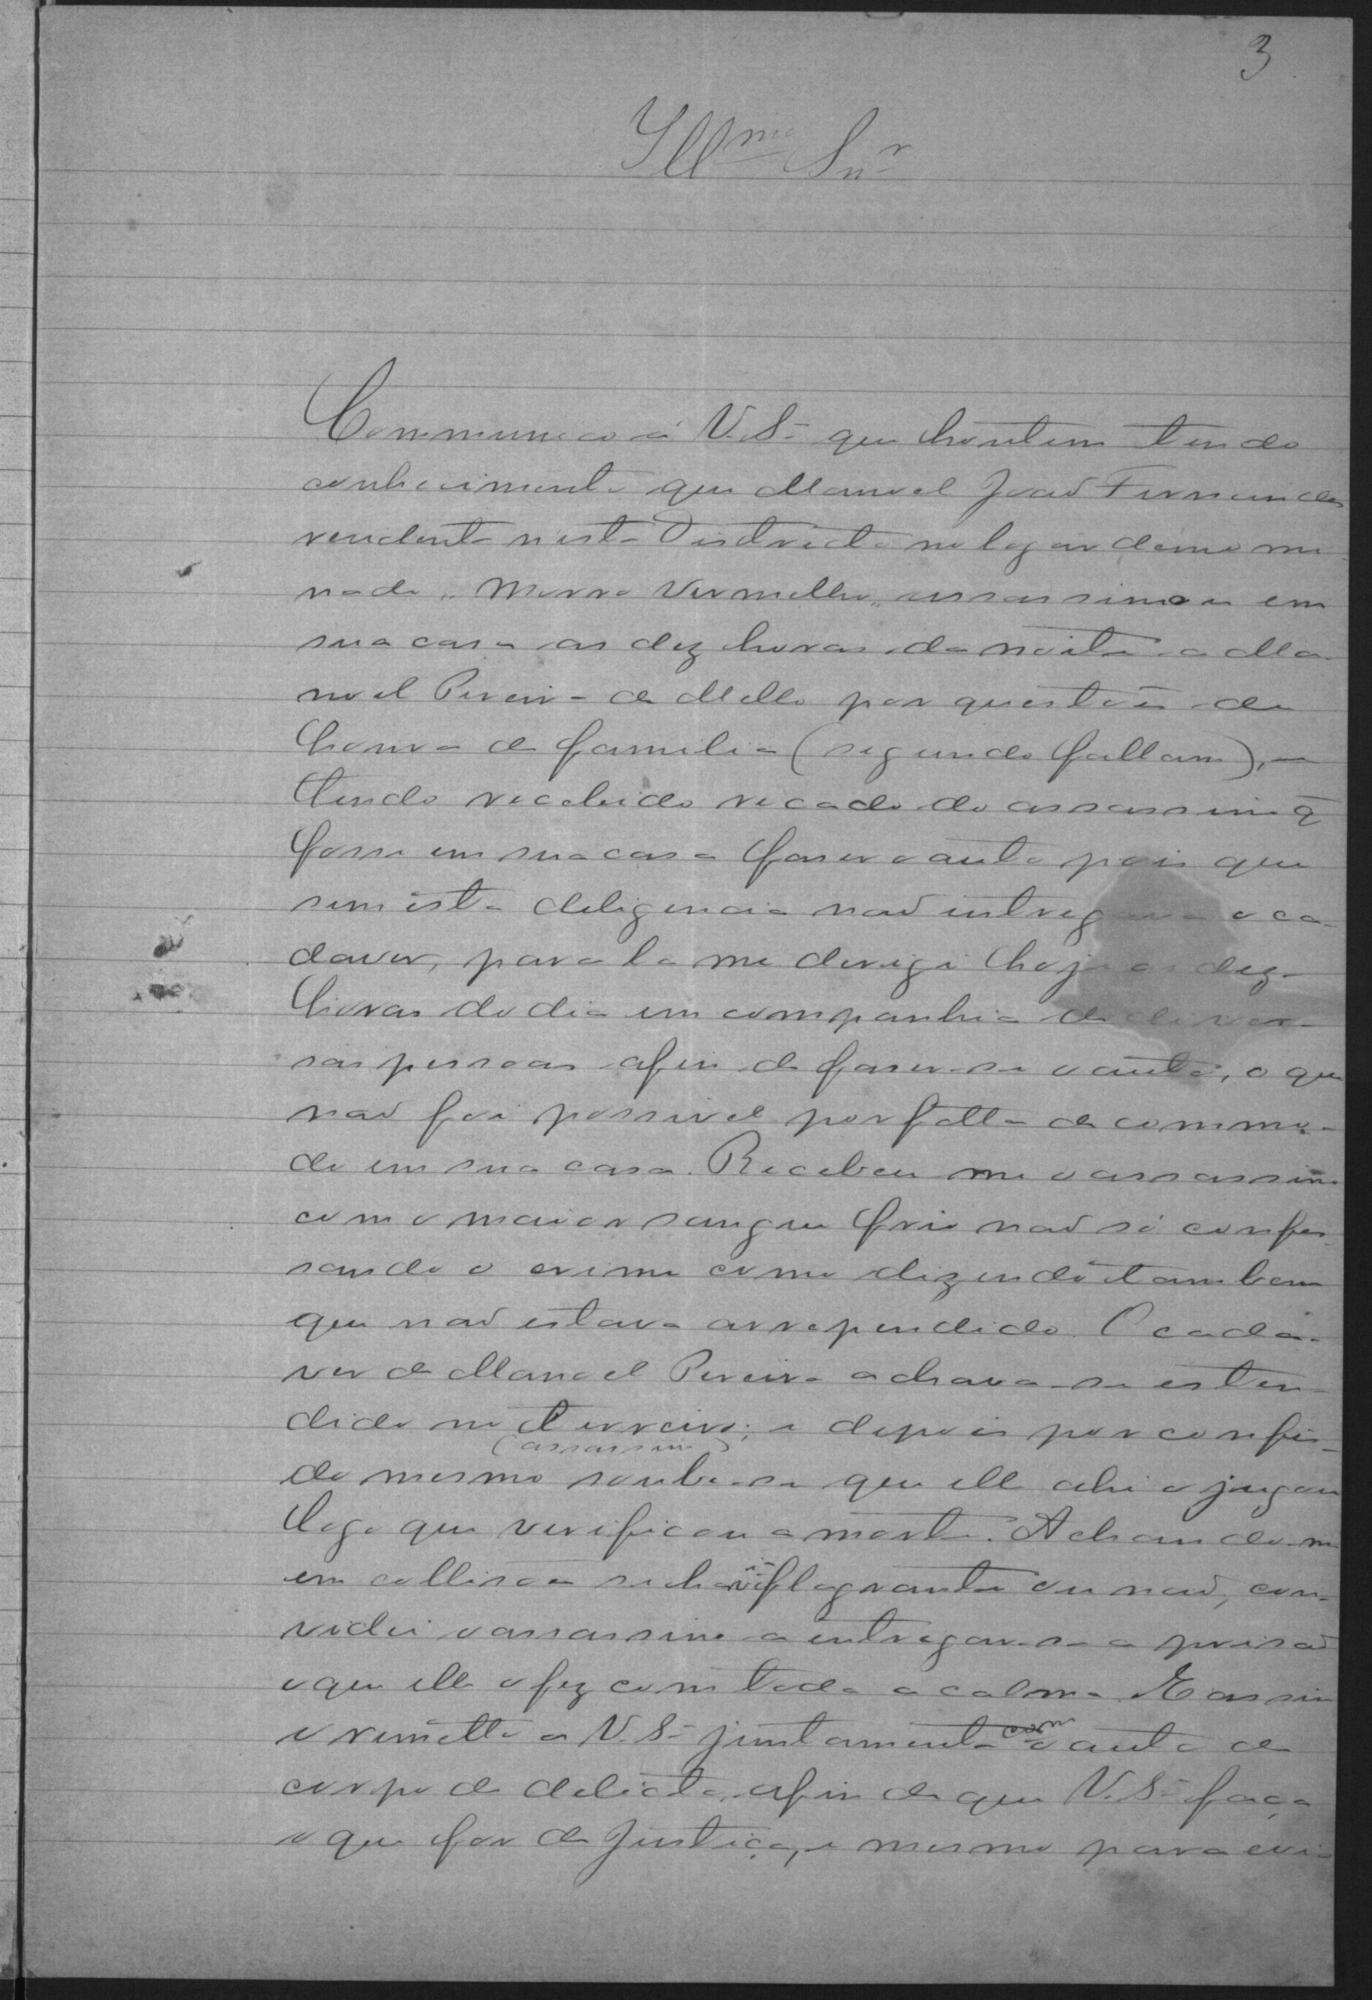 3
Illmo Snr
Communico á V. Sª que hontem tendo
conhecimento que Manoel João Fernandes
residente neste Districto no logar denomi
nado "Morro Vermelho" assassinou em
sua casa as dez horas da noite a Ma-
noel Pereira de Mello por questões de
honra de familia (segundo fallam), e
tendo recebido recado do assassino q̃
fosse em sua casa faser o auto pois que
sem esta deligencia não entregava o ca-
daver, para la me derigi hoje as dez
horas do dia em companhia de diver-
sas pessoas afim de faser-se o auto, o que
não foi possivel por falta de commo-
do em sua casa. Recebeu me o assassino
com o maior sangue frio não só confes-
sando o crime como dizendo tambem
que não estava arrependido. O cadá-
ver de Manoel Pereira achava-se esten-
dido no terreiro; e depois por confis-
(assassino)
do mesmo soube-se que elle ahi o jugou
logo que verificou a morte. Achando-me
em collisão se havia flagrante ou não, con-
videi o assassino a entregar-se a prisão
o que elle o fez com toda a calma. E assim
o remetto a V. Sª juntamente com o auto de
corpo de delicto, afim de que V. Sª faça
o que for de Justiça, e mesmo para evi-